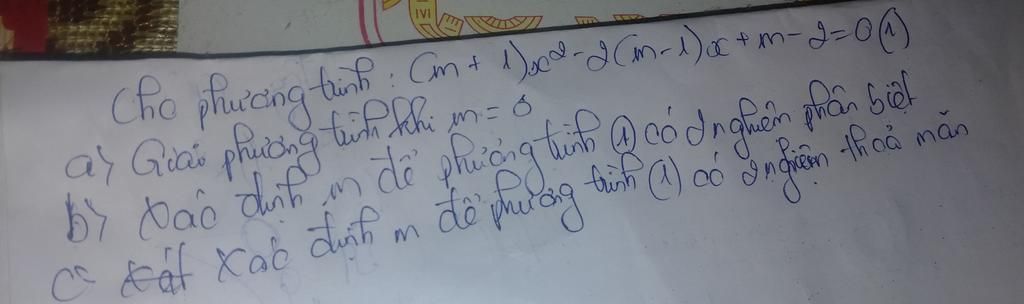 Cho phương trình: (m + 1)x² - 2(m - 1)x + m - 2 = 0 (1)
a) Giải phương trình khi m =
b) Xác định m để phương trình (1) có 2 nghiệm phân biệt
c Xác định m để phương trình (1) có 2 nghiệm thoả mãn